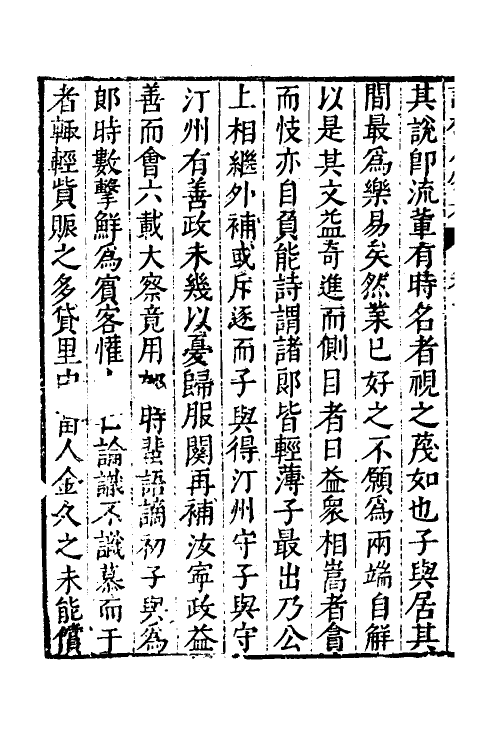 其說即流輩有時名者視之蔑如也子與居其
間最為樂易矣然業已好之不願為兩端自解
以是其文益奇進而側目者日益衆相嵩者會
而忮亦自負能詩謂諸郎皆輕薄子最出乃公
上相繼外補或斥逐而子與得汀州守子與守
汀州有善政未幾以憂歸服闋再補汝寧政益
善而會六載大察竟用郎時蜚語謫初子與為
郎時數擊鮮為賓客懽論議不識慕而于
者輒輕貲賑之多貸里中人金久之未能償